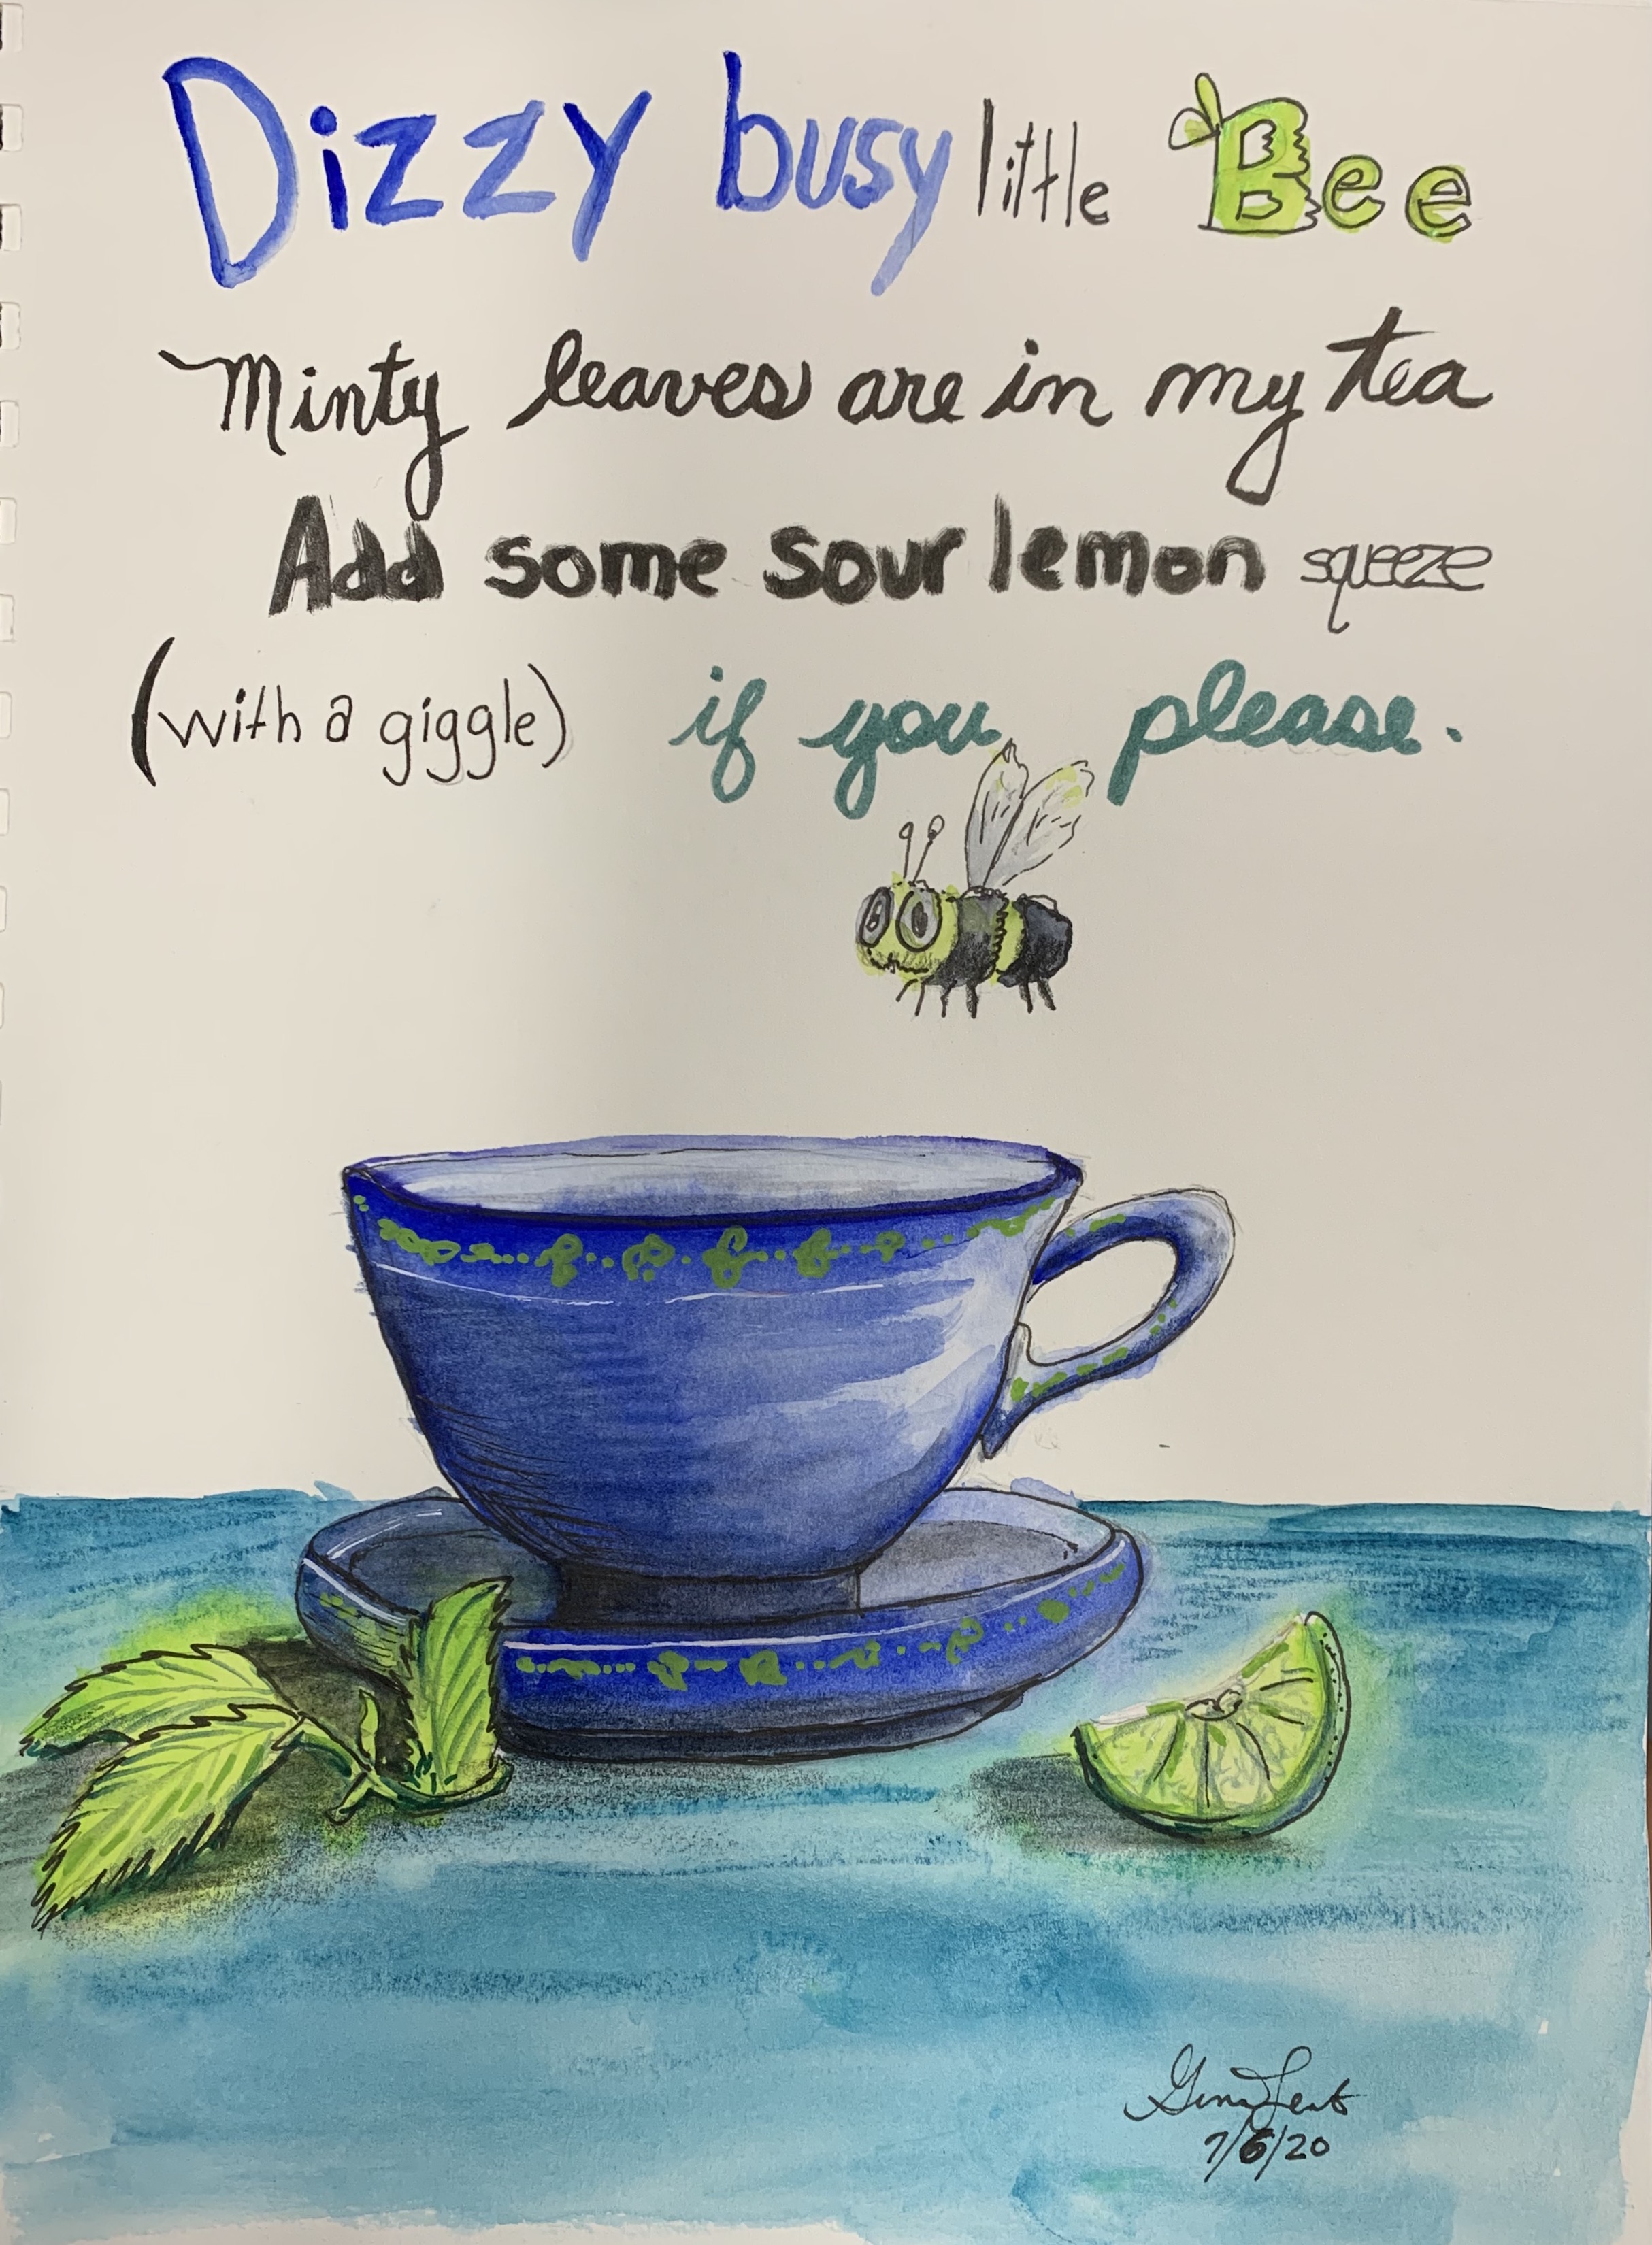 Dizzy busy little Bee
Minty leaves are in my tea
Add some sour lemon squeeze
(with a giggle) if you please.
7/6/20